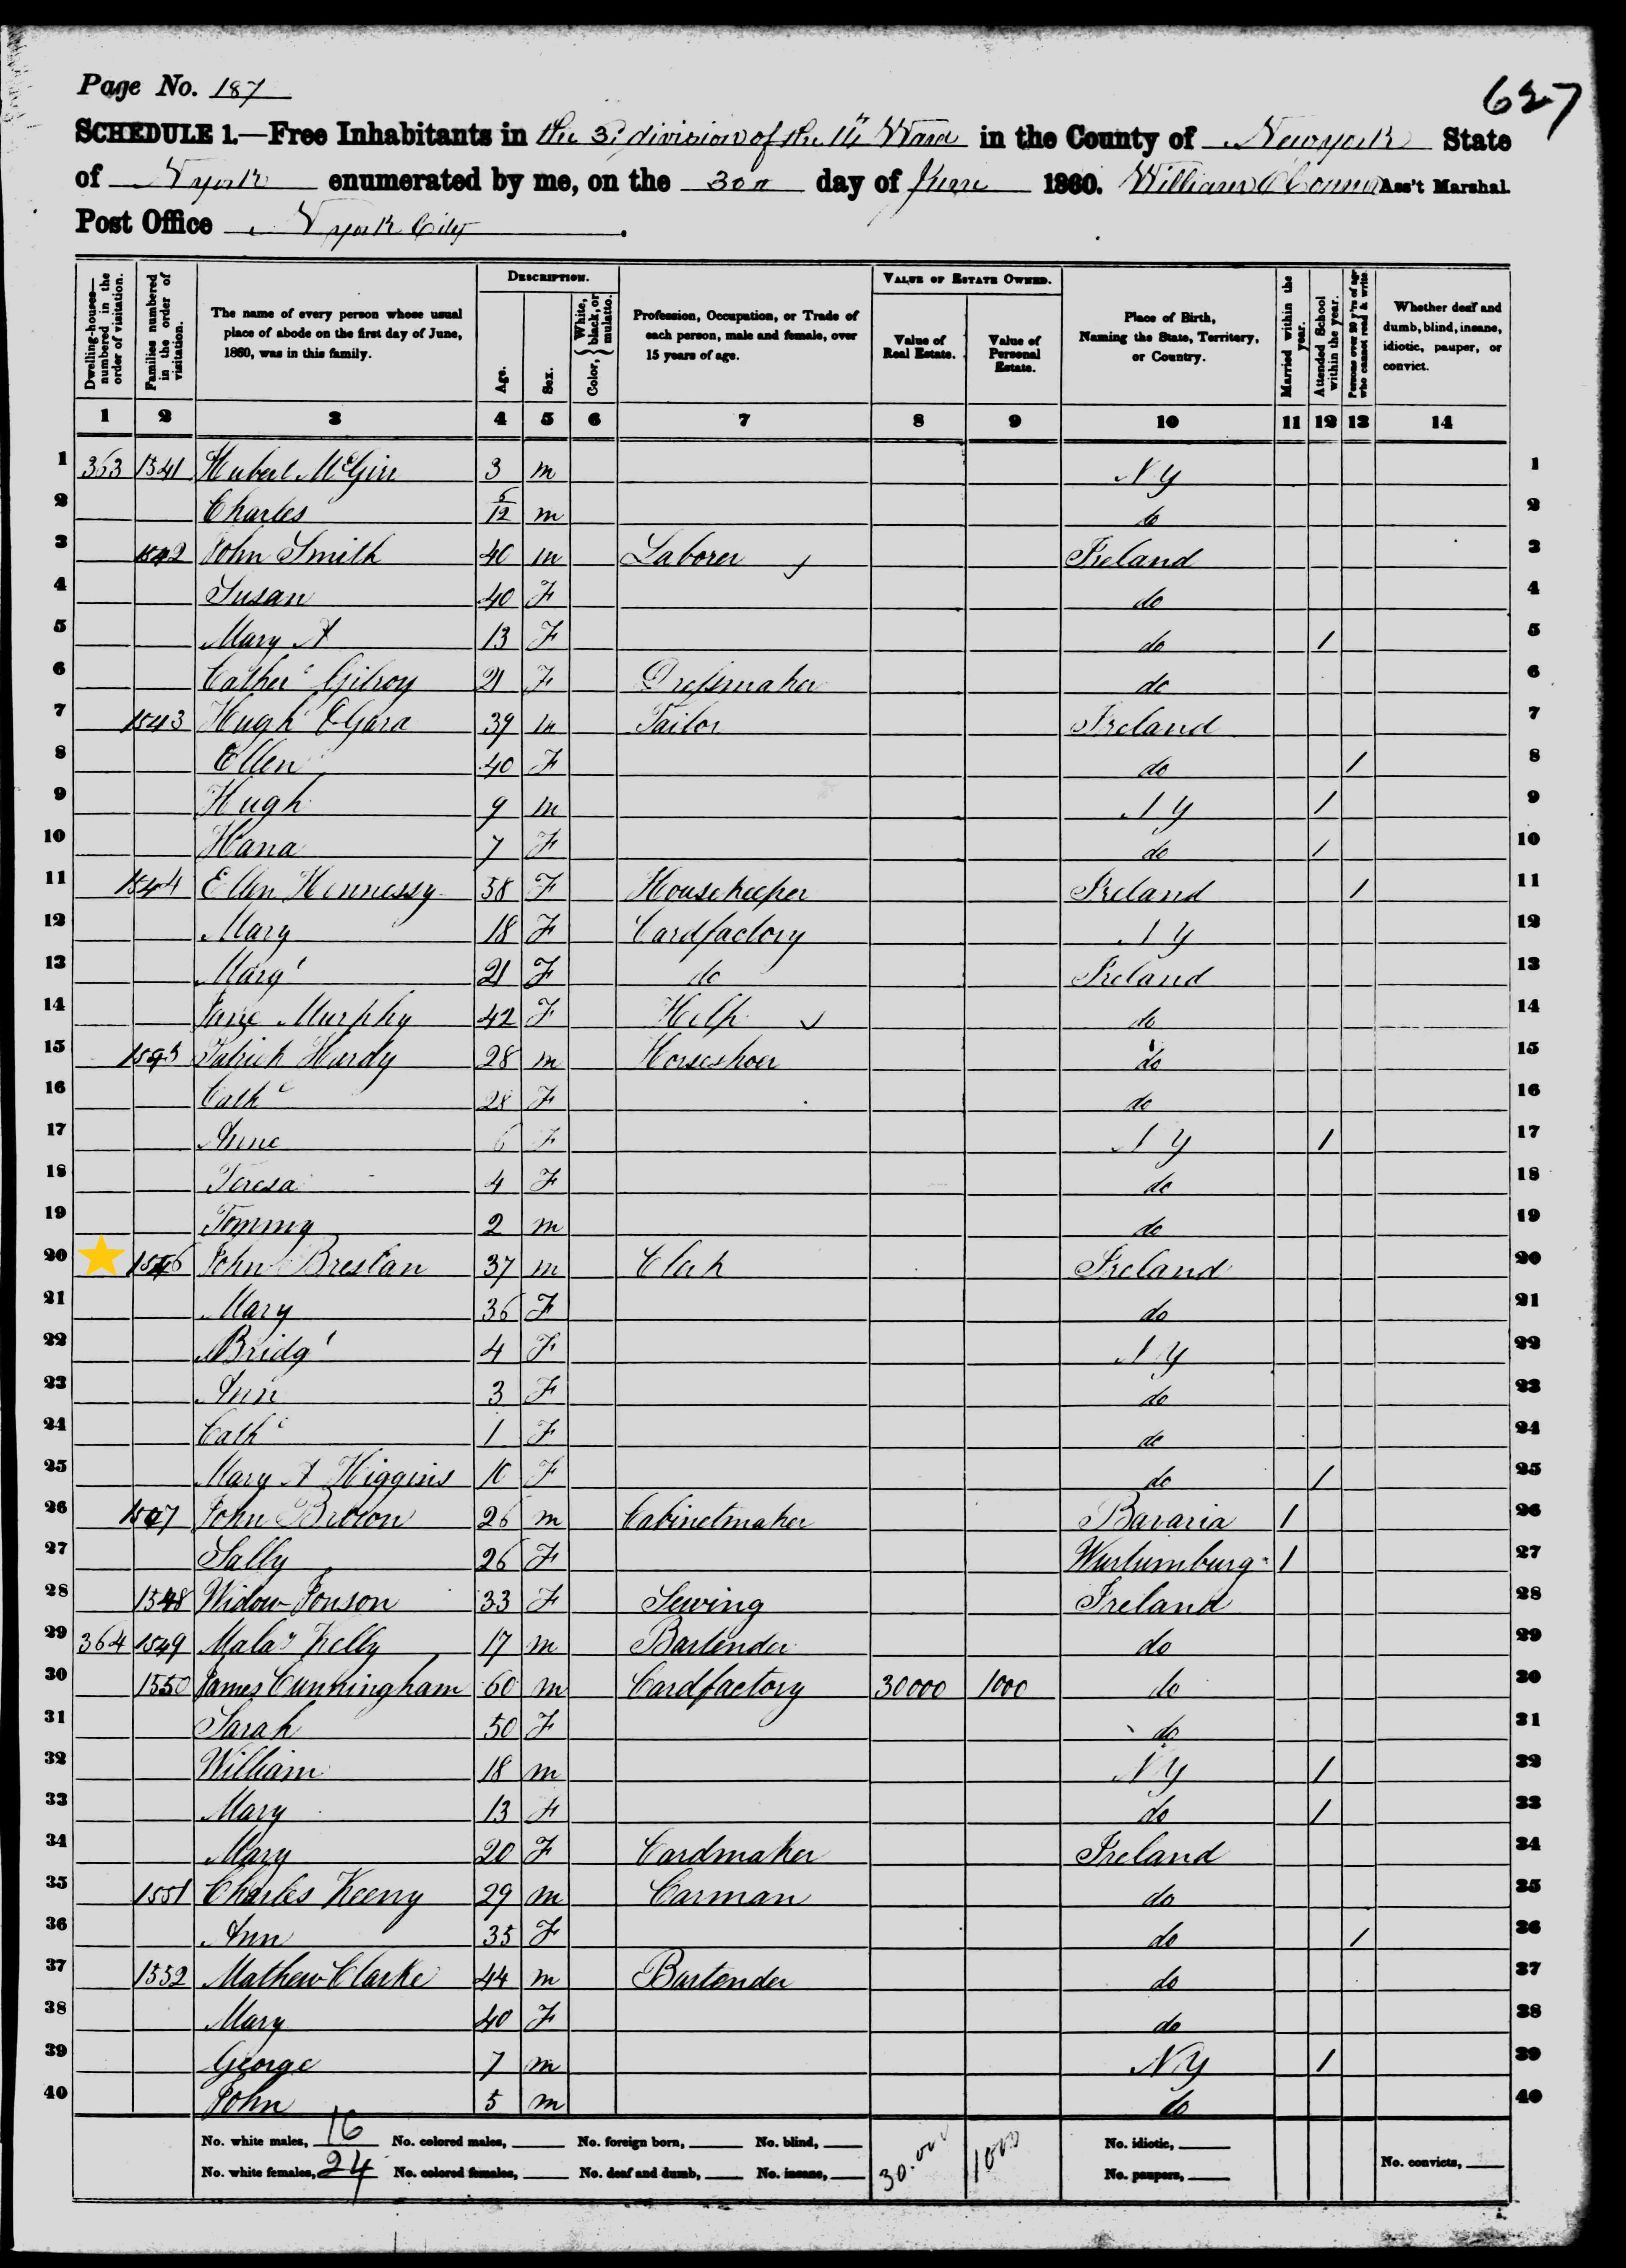 Page No. 187
627
SCHEDULE 1.—Free Inhabitants in the 3d division of the 14 Ward in the County of New york State
of N york enumerated by me, on the 30th day of June 1860. William O Connor Ass't Marshal.
Post Office N york City.
Dwelling-houses—numbered in the order of visitation.
Families numbered in the order of visitation.
The name of every person whose usual place of abode on the first day of June, 1860, was in this family.
DESCRIPTION.
Age.
Sex.
Color, { White, black, or mulatto.
Profession, Occupation, or Trade of each person, male and female, over 15 years of age.
VALUE OF ESTATE OWNED.
Value of Real Estate.
Value of Personal Estate.
Place of Birth, Naming the State, Territory, or Country.
Married within the year.
Attended School within the year.
Persons over 20 y'rs of age who cannot read & write
Whether deaf and dumb, blind, insane, idiotic, pauper, or convict.
1 2 3 4 5 6 7 8 9 10 11 12 13 14
1 363 1541 Hubert McGirr 3 m N Y 1
2 Charles 5/12 m do 2
3 1542 John Smith 40 m Laborer Ireland 3
4 Susan 40 F do 4
5 Mary A 13 F do / 5
6 Cathe c Gilroy 21 F Dressmaker do 6
7 1543 Hugh OGara 39 m Tailor Ireland 7
8 Ellen 40 F do / 8
9 Hugh 9 m N Y / 9
10 Hana 7 F do / 10
11 1544 Ellen Hennessy 58 F Housekeeper Ireland / 11
12 Mary 18 F Cardfactory N Y 12
13 Marg t 21 F do Ireland 13
14 Jane Murphy 42 F Help do 14
15 1545 Patrick Hardy 28 m Horseshoer do 15
16 Cath e 28 F do 16
17 Anne 6 F N Y / 17
18 Teresa 4 F do 18
19 Tommy 2 m do 19
20 1546 John Breslan 37 m Clerk Ireland 20
21 Mary 36 F do 21
22 Bridg t 4 F N Y 22
23 Ann 3 F do 23
24 Cath e 1 F do 24
25 Mary A Higgins 10 F do / 25
26 1547 John Brown 26 m Cabinetmaker Bavaria / 26
27 Sally 26 F Wurtumburg / 27
28 1548 Widow Jonson 33 F Sewing Ireland 28
29 364 1549 Mala y Kelly 17 m Bartender do 29
30 1550 James Cunningham 60 m Cardfactory 30000 1000 do 30
31 Sarah 50 F do 31
32 William 18 m N Y / 32
33 Mary 13 F do / 33
34 Mary 20 F Cardmaker Ireland 34
35 1551 Charles Keeny 29 m Carman do 35
36 Ann 35 F do / 36
37 1552 Mathew Clarke 44 m Bartender do 37
38 Mary 40 F do 38
39 George 7 m N Y / 39
40 John 5 m do 40
No. white males, 16 No. colored males, No. foreign born, No. blind, 30.000 1000 No. idiotic,
No. white females, 24 No. colored females, No. deaf and dumb, No. insane, No. paupers, No. convicts,